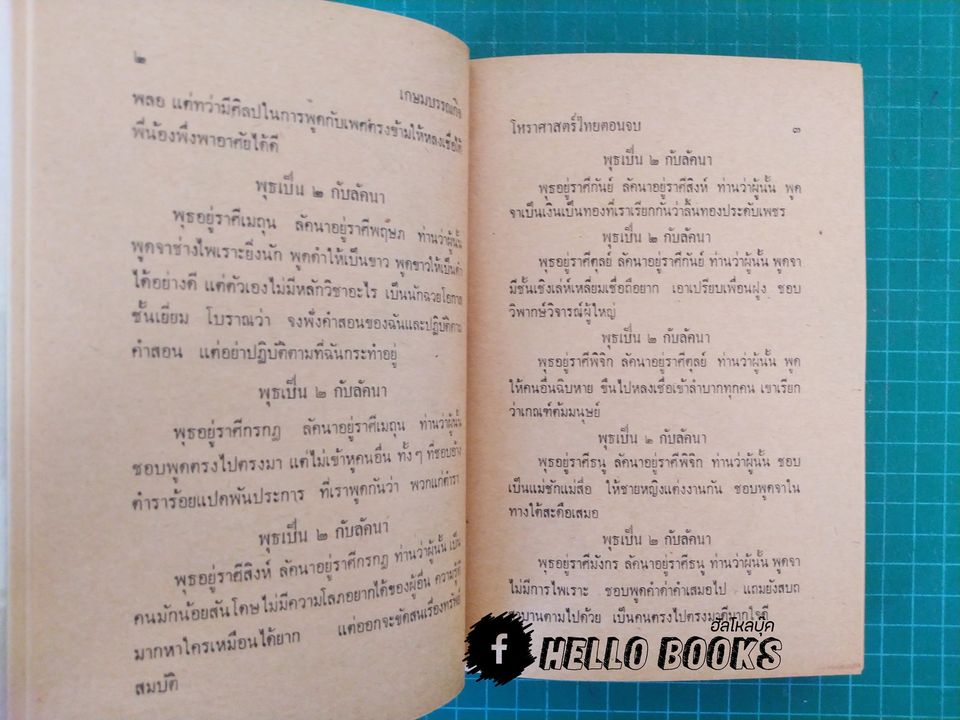 ๒
เกษมบรรณกิจ
พลอ แต่ทว่ามีศิลปในการพูดกับเพศตรงข้ามให้หลงเชื่อได้
พี่น้องพึ่งพาอาศัยได้ดี
พุธเป็น ๒ กับลัคนา
พุธอยู่ราศีเมถุน ลัคนาอยู่ราศีพฤษภ ท่านว่าผู้นั้น
พูดจาช่างไพเราะยิ่งนัก พูดดำให้เป็นขาว พูดขาวให้เป็นดำ
ได้อย่างดี แต่ตัวเองไม่มีหลักวิชาอะไร เป็นนักฉวยโอกาส
ชั้นเยี่ยม โบราณว่า จงฟังคำสอนของฉันและปฏิบัติตาม
คำสอน แต่อย่าปฏิบัติตามที่ฉันกระทำอยู่
พุธเป็น ๒ กับลัคนา
พุธอยู่ราศีกรกฎ ลัคนาอยู่ราศีเมถุน ท่านว่าผู้นั้น
ชอบพูดตรงไปตรงมา แต่ไม่เข้าหูคนอื่น ทั้งๆ ที่ชอบอ้าง
ตำราร้อยแปดพันประการ ที่เราพูดกันว่า พวกแก่ตำรา
พุธเป็น ๒ กับลัคนา
พุธอยู่ราศีสิงห์ ลัคนาอยู่ราศีกรกฎ ท่านว่าผู้นั้น เป็น
คนมักน้อยสันโดษไม่มีความโลภอยากได้ของผู้อื่น ความรู้ดี
มากหาใครเหมือนได้ยาก แต่ออกจะขัดสนเรื่องทรัพย์
สมบัติ
โหราศาสตร์ไทยตอนจบ ๓
พุธเป็น ๒ กับลัคนา
พุธอยู่ราศีกันย์ ลัคนาอยู่ราศีสิงห์ ท่านว่าผู้นั้น พูด
จาเป็นเงินเป็นทองที่เราเรียกกันว่าลิ้นทองประดับเพชร
พุธเป็น ๒ กับลัคนา
พุธอยู่ราศีตุลย์ ลัคนาอยู่ราศีกันย์ ท่านว่าผู้นั้น พูดจา
มีชั้นเชิงเล่ห์เหลี่ยมเชื่อถือยาก เอาเปรียบเพื่อนฝูง ชอบ
วิพากษ์วิจารณ์ผู้ใหญ่
พุธเป็น ๒ กับลัคนา
พุธอยู่ราศีพิจิก ลัคนาอยู่ราศีตุลย์ ท่านว่าผู้นั้น พูด
ให้คนอื่นฉิบหาย ขืนไปหลงเชื่อเข้าลำบากทุกคน เขาเรียก
ว่าเกณฑ์ต้มมนุษย์
พุธเป็น ๒ กับลัคนา
พุธอยู่ราศีธนู ลัคนาอยู่ราศีพิจิก ท่านว่าผู้นั้น ชอบ
เป็นแม่ชักแม่สื่อ ให้ชายหญิงแต่งงานกัน ชอบพูดจาใน
ทางใต้สะดือเสมอ
พุธเป็น ๒ กับลัคนา
พุธอยู่ราศีมังกร ลัคนาอยู่ราศีธนู ท่านว่าผู้นั้น พูดจา
ไม่มีการไพเราะ ชอบพูดคำด่าคำเสมอไป แถมยังสบถ
สาบานตามไปด้วย เป็นคนตรงไปตรงมาดีมากใจดี
ฮัลโหลบุ๊ค
f HELLO BOOKS